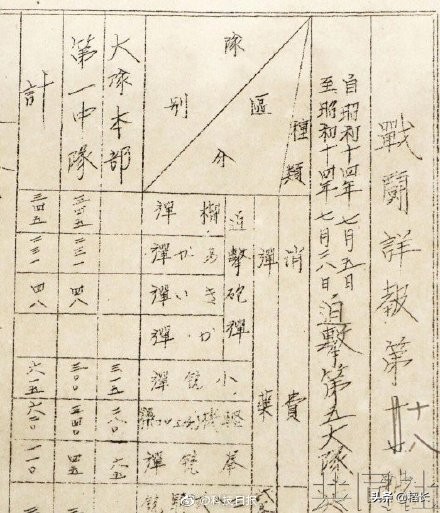 戰鬪詳報第
自昭和十四年七月五日
至昭和十四年七月二八日
迫擊第五大隊
種類
區分
隊別
消費彈藥
迫擊砲彈
榴彈
あか彈
きい彈
彈
小銃彈
拳銃彈
大隊本部
三一五
二八〇
六五
第一中隊
三四五
二三一
四八
三〇〇
四五
計
三四五
二三一
四八
六一五
一一〇
共同社
头条 @稻长